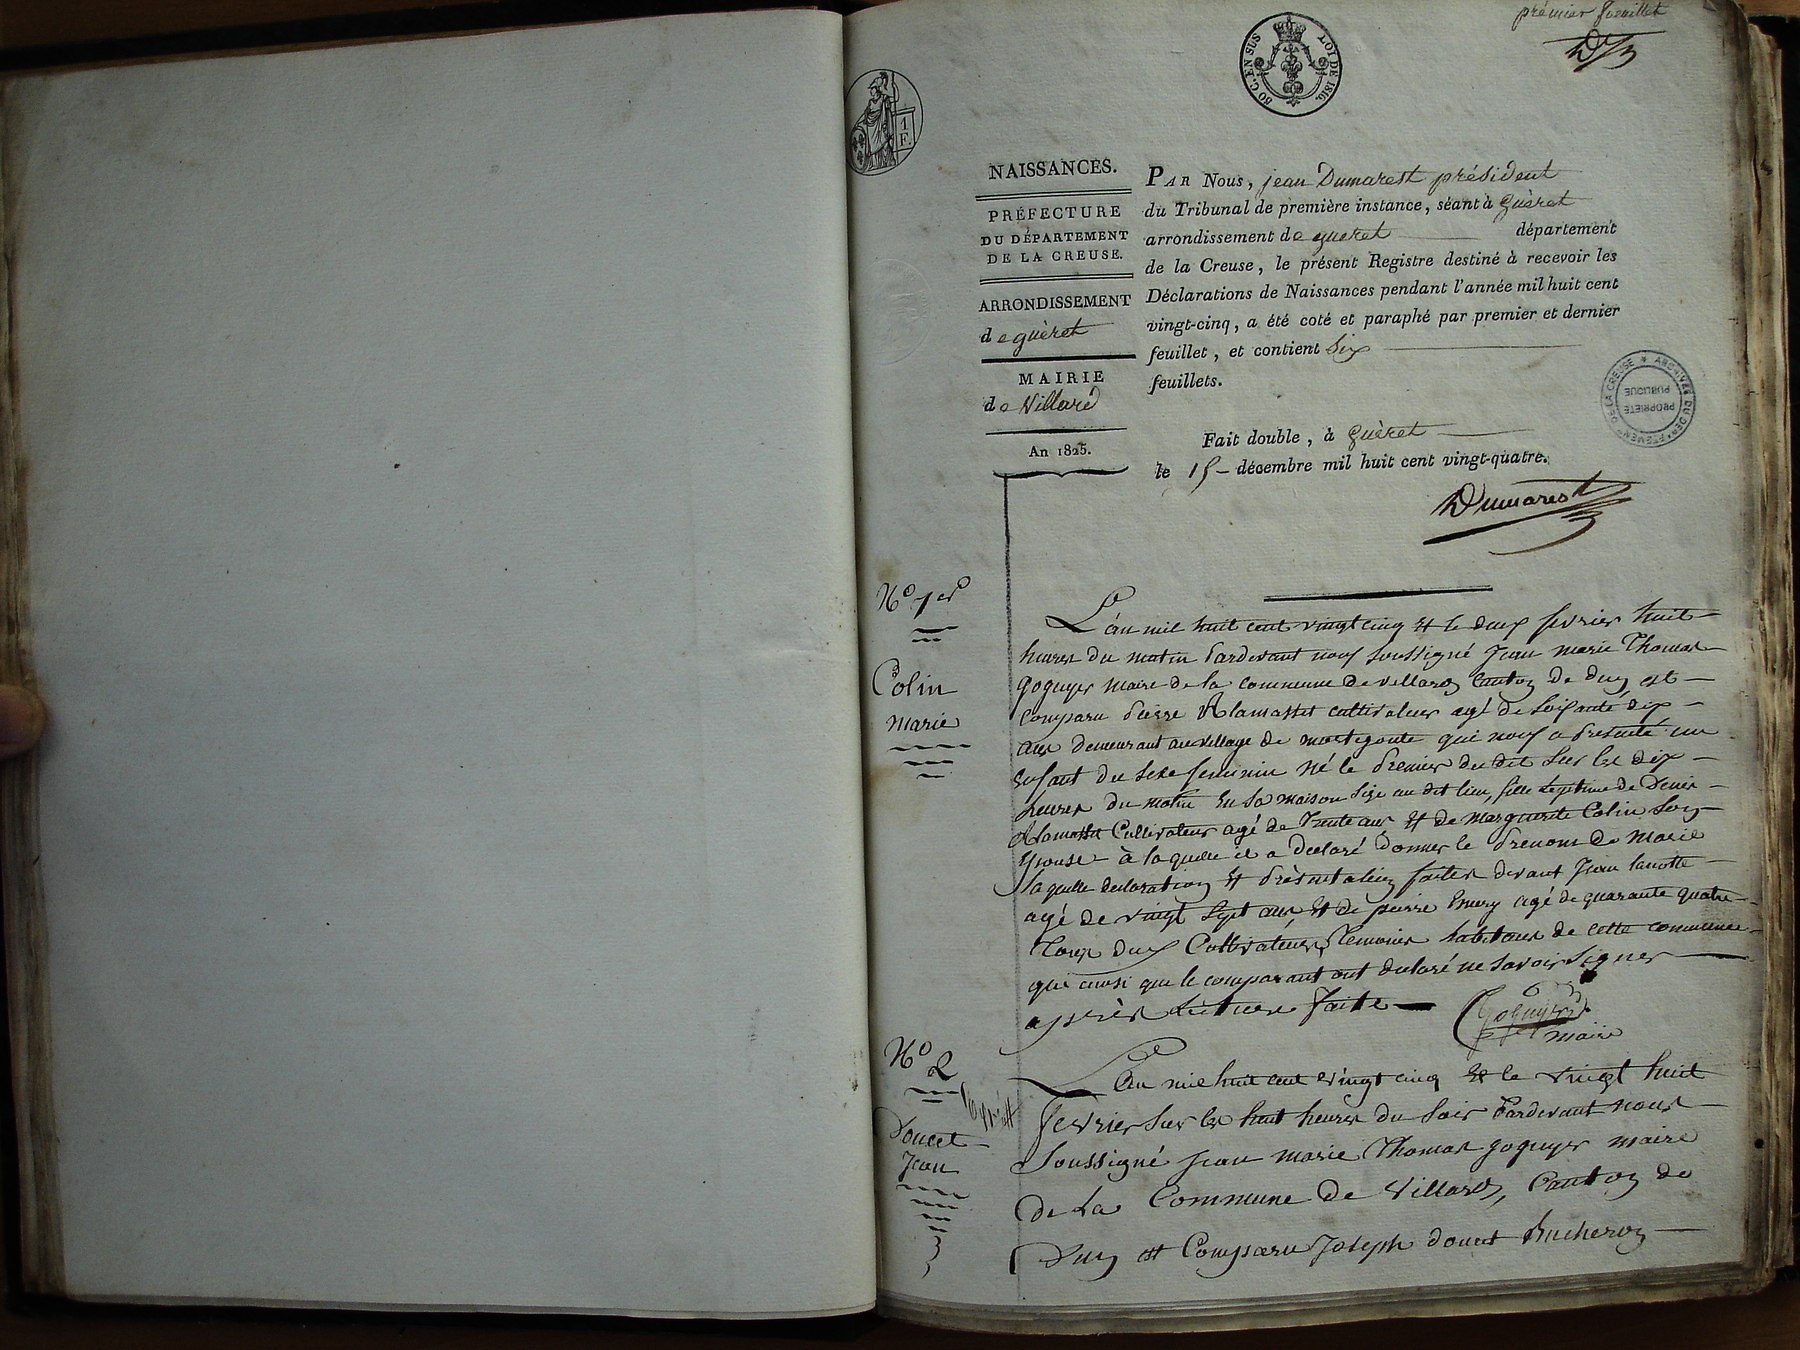 prémier feuillet
80 C. EN SUS LOI DE 1816.
1 F.
NAISSANCES.
PRÉFECTURE
DU DÉPARTEMENT
DE LA CREUSE.
ARRONDISSEMENT
de guèret
MAIRIE
de Villard
An 1825.
PAR Nous, jean Dumarest président
du Tribunal de première instance, séant à Guèret
arrondissement de gueret département
de la Creuse, le présent Registre destiné à recevoir les
Déclarations de Naissances pendant l'année mil huit cent
vingt-cinq, a été coté et paraphé par premier et dernier
feuillet, et contient Six
feuillets.
ARCHIVES DU DEPARTEMENT DE LA CREUSE
PROPRIETE
PUBLIQUE
Fait double, à Guèret
le 15 décembre mil huit cent vingt-quatre.
Dumarest
No 1er
Colin
marie
L'an mil huit cent vingt cinq et le deux fevrier huit
heures du matin Pardevant nous Soussigné Jean marie Thomas
goguyer maire de la commune de villard Canton de Dun est
comparu Pierre cultivateur agé de Soixante dix
ans demeurant au village de montégoute qui nous a Présenté un
Enfant du Sexe feminin né le Premier du dit Sur les dix
heures du matin En Sa maison Size au dit lieu, fille légitime de Denis
Cultivateur agé de Trente ans et de marguerite Colin Son
Epouse à la quelle il a déclaré donner le Prenom de Marie
la quelle declaration et Présentation faites devant Jean lanotte
agé de vingt Sept ans, et de pierre agé de quarante quatre
Tous deux Cultivateurs, Temoins habitans de cette commune
qui ainsi que le comparant ont declaré ne Savoir Signer
apprès Lecture faite
goguyer
maire
No 2
Doucet
Jean
L'an mil huit cent vingt cinq et le vingt huit
fevrier Sur les huit heures du Soir Pardevant nous
Soussigné Jean marie Thomas goguyer maire
de La Commune de Villard, Canton de
Dun est Comparu Joseph doucet Bucheron